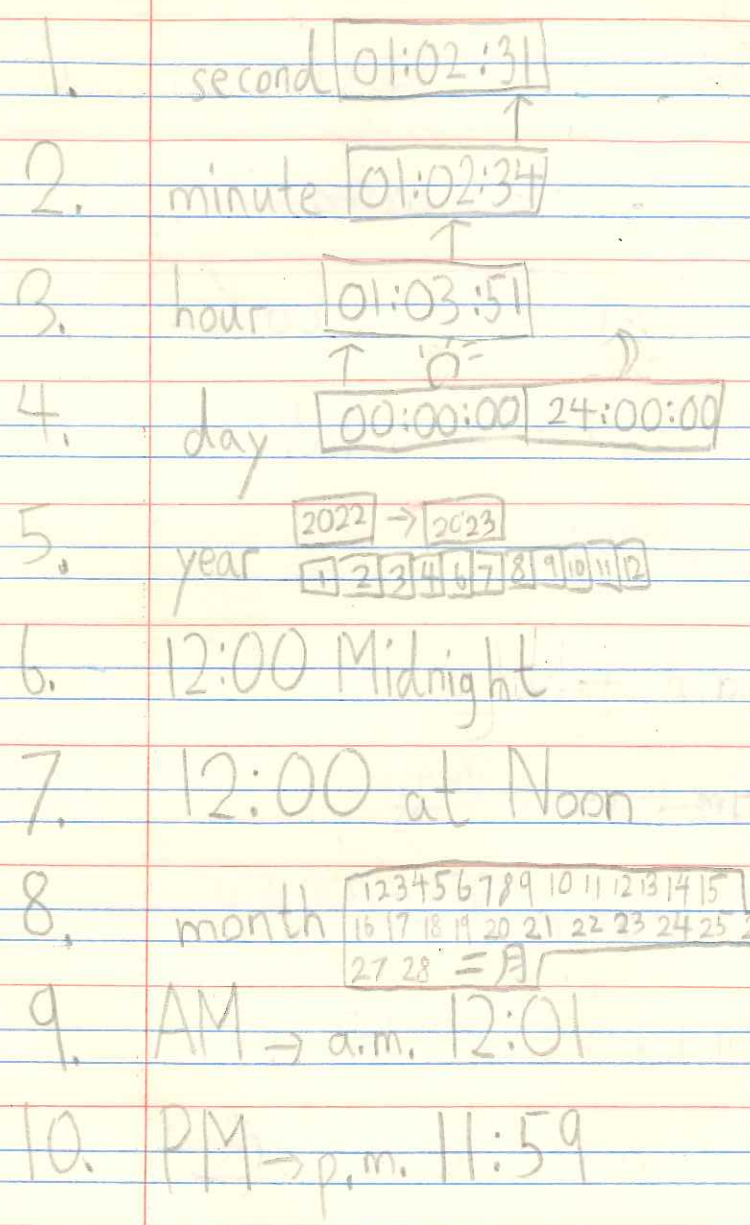 1. second 01:02:31
2. minute 01:02:34
3. hour 01:03:51
4. day 00:00:00 24:00:00
5. year 2022 → 2023
1 2 3 4 6 7 8 9 10 11 12
6. 12:00 Midnight
7. 12:00 at Noon
8. month 1 2 3 4 5 6 7 8 9 10 11 12 13 14 15
16 17 18 19 20 21 22 23 24 25
27 28 = 月
9. AM → a.m. 12:01
10. PM → p.m. 11:59